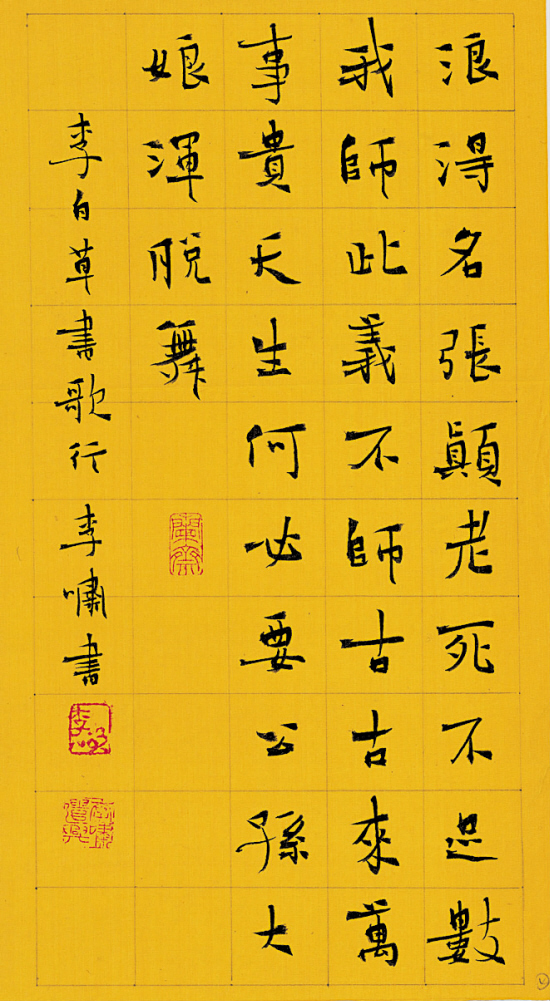 浪得名張顛老死不足數
我師此義不師古古來萬
事貴天生何必要公孫大
娘渾脫舞
李白草書歌行 李嘯書